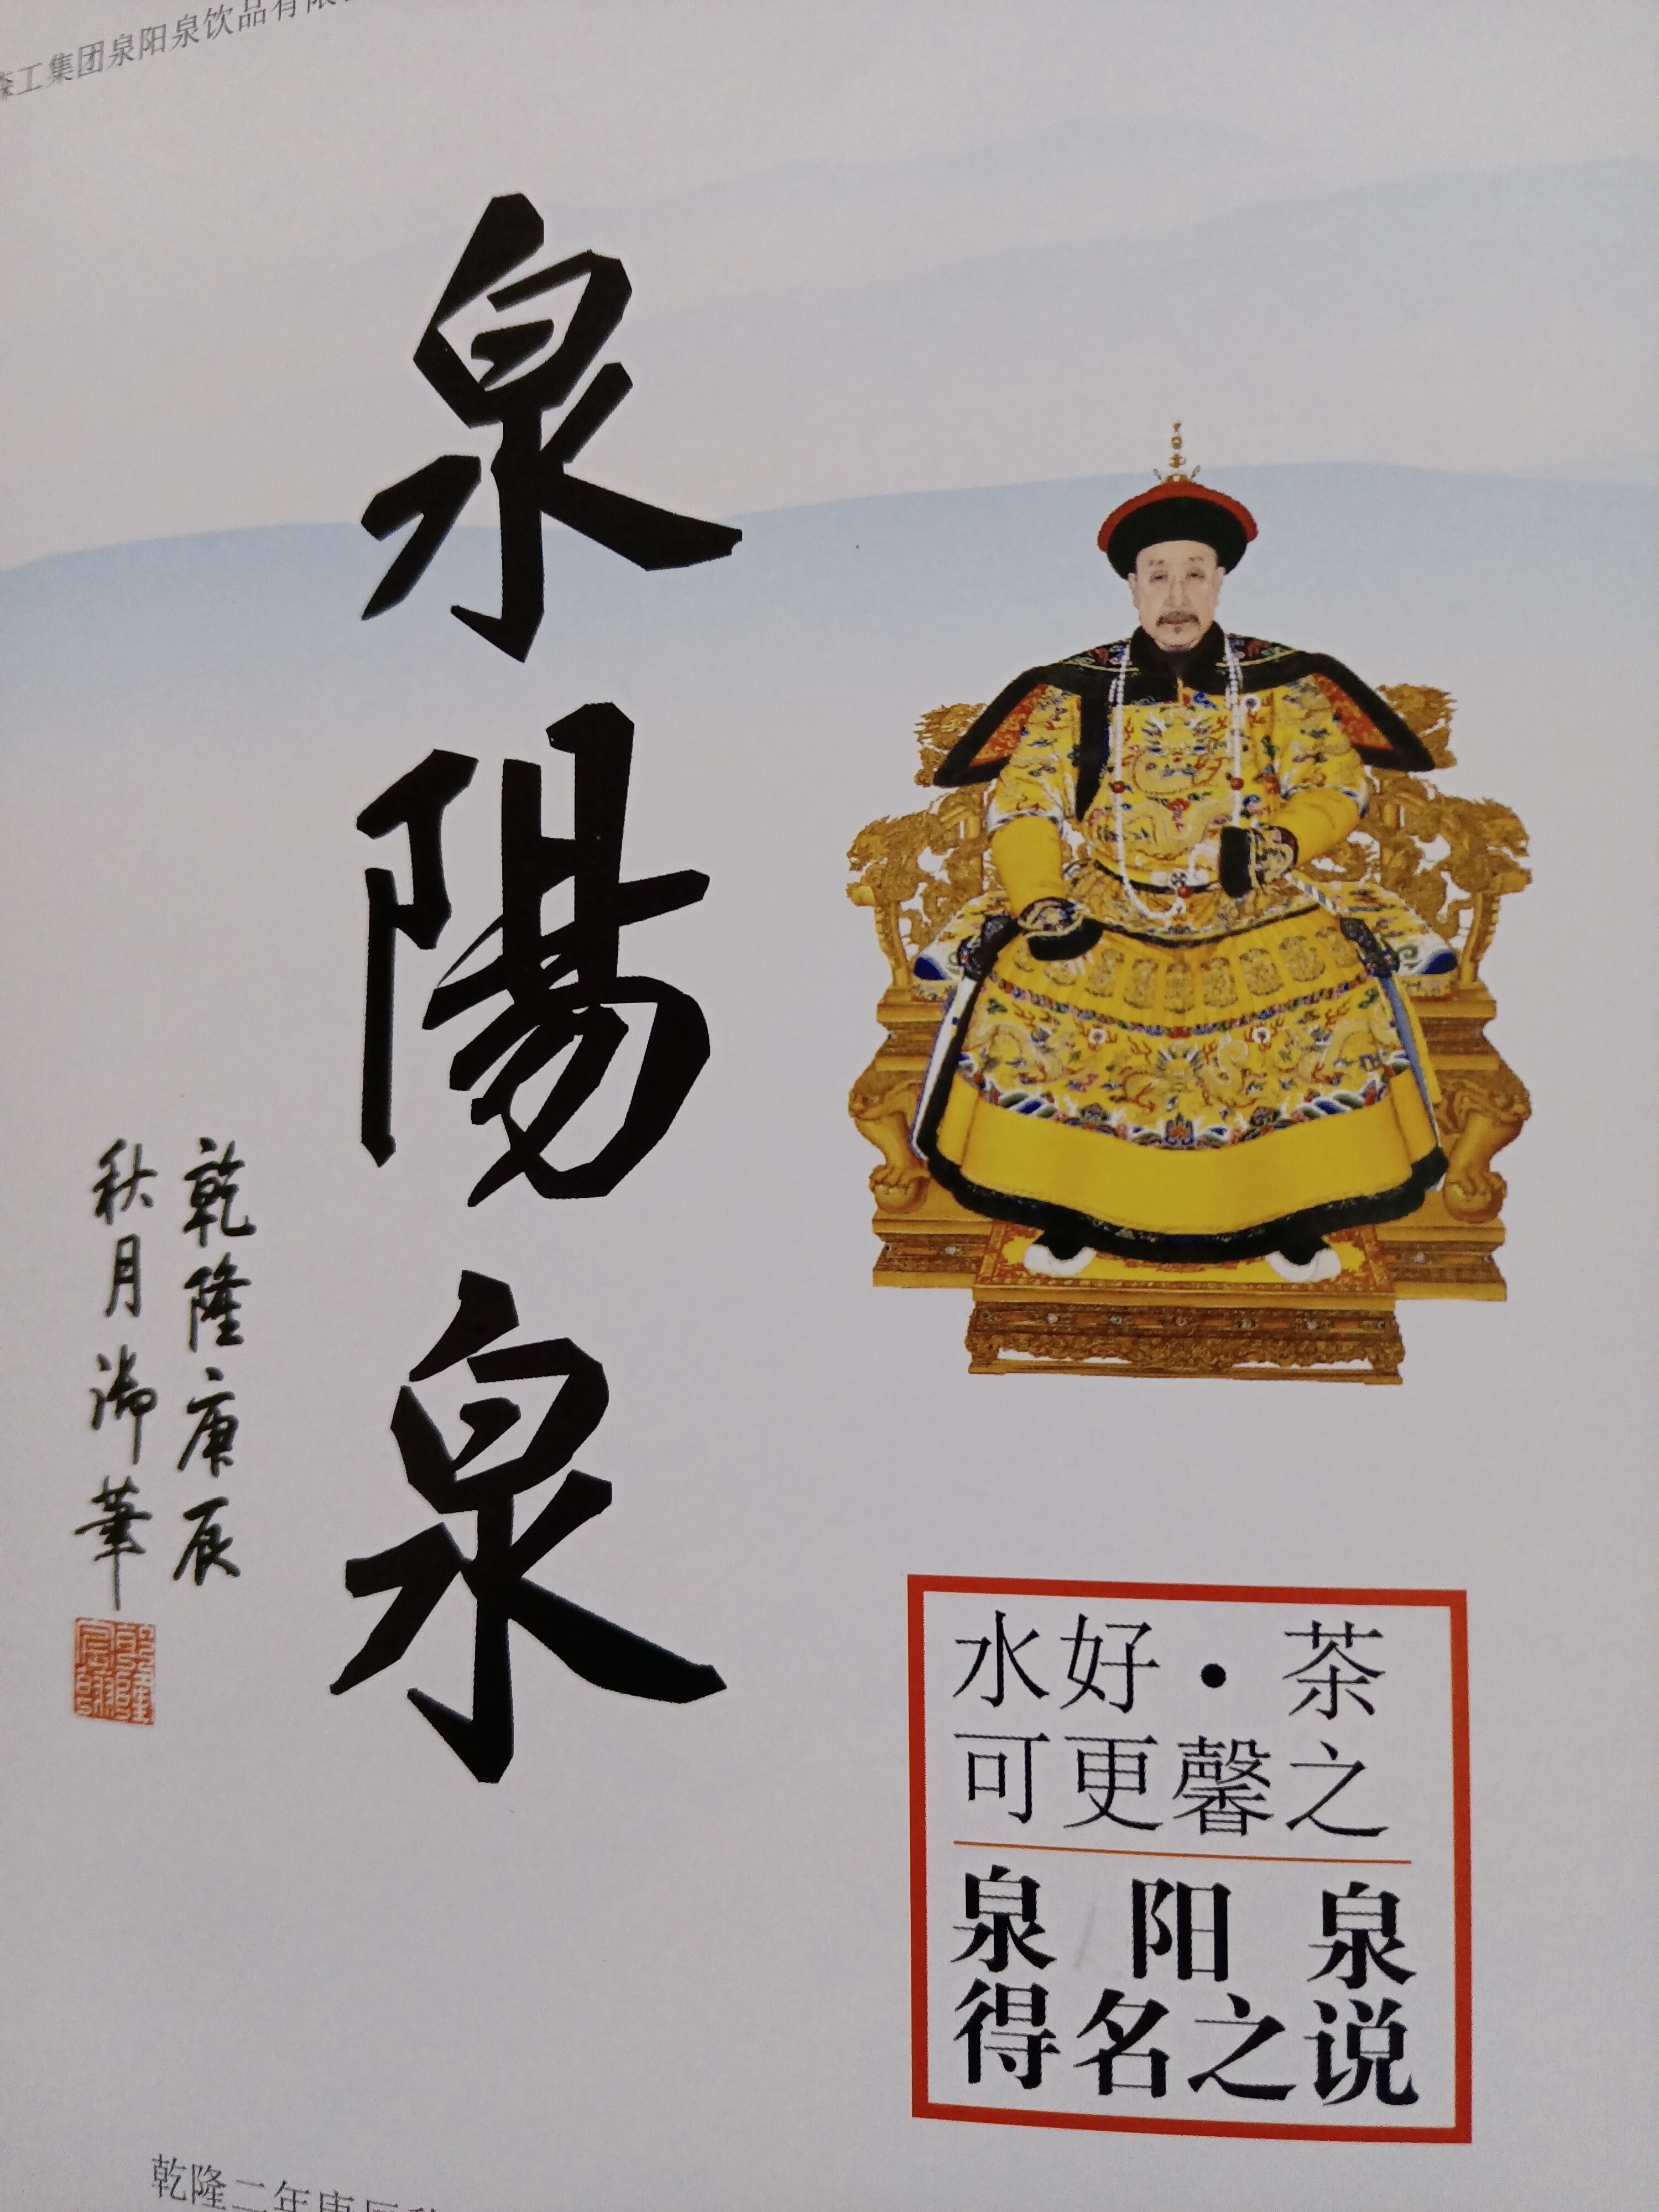 森工集团泉阳泉饮品有限
泉陽泉
乾隆庚辰
秋月御筆
水好·茶
可更馨之
泉阳泉
得名之说
乾隆二年庚辰